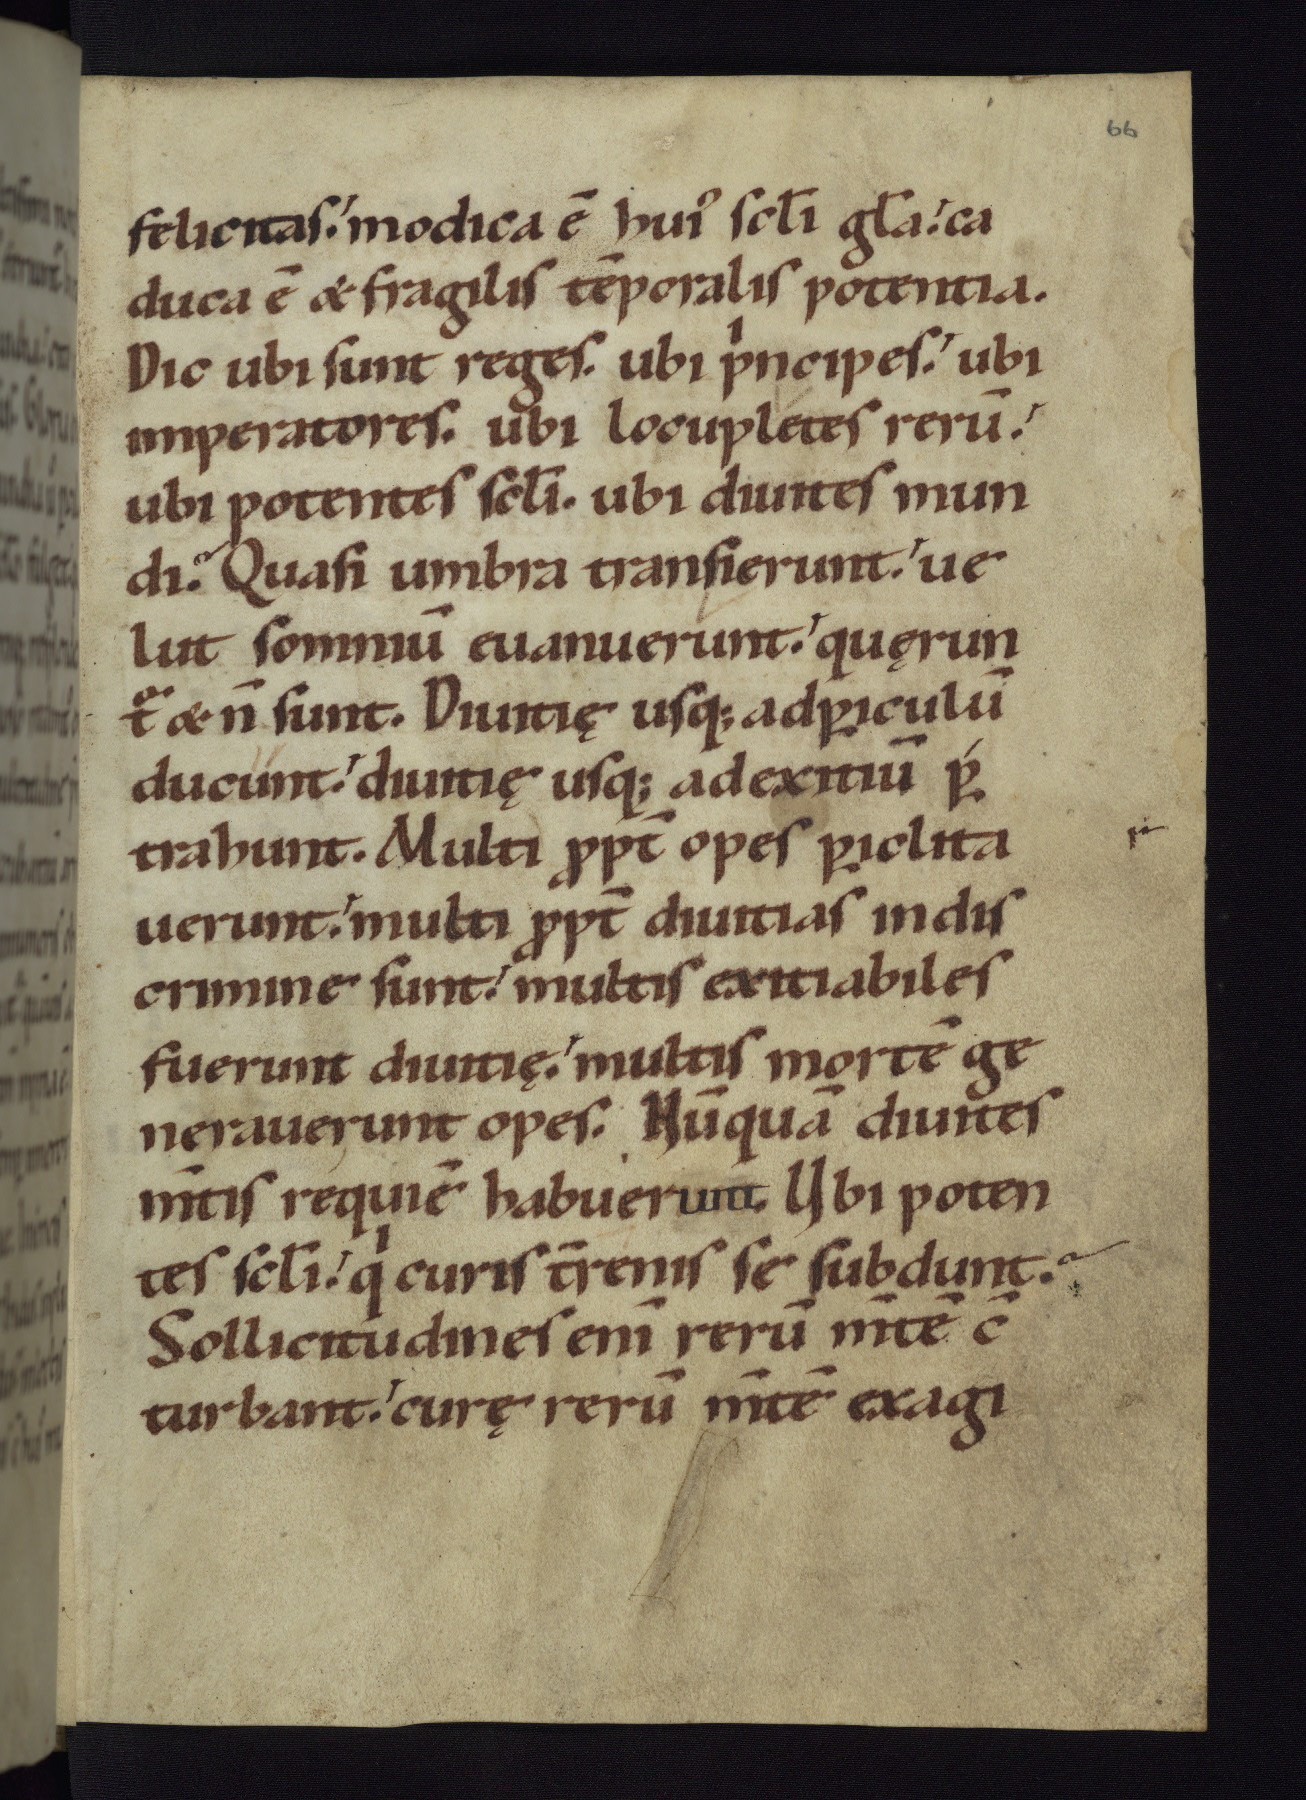 66
felicitas. modica ē hui᷒ scl̄i gl̄a. ca
duca ē & fragilis tēporalis potentia.
Dic ubi sunt reges. ubi pͥncipes. ubi
imperatores. ubi locupletes rerū.
ubi potentes scl̄i. ubi diuites mun
di. Quasi umbra transierunt. ue
lut somniū euanuerunt. quęrun
t᷑ & n̄ sunt. Diuitię usq; ad ꝑiculū
ducunt. diuitię usq; ad exitiū ꝑ
trahunt. Multi ꝓpt̄ opes ꝑiclita
uerunt. multi ꝓpt̄ diuitias in dis
crimine sunt. multis exitiabiles
fuerunt diuitię. multis mortē ge
nerauerunt opes. Nūquā diuites
m̄tis requiē habuerunt. Ubi poten
tes scl̄i. qͥ curis t̄renis se subdunt.
Sollicitudines eni̅ rerū m̄tē c̄
turbant. curę rerū m̄tē exagi